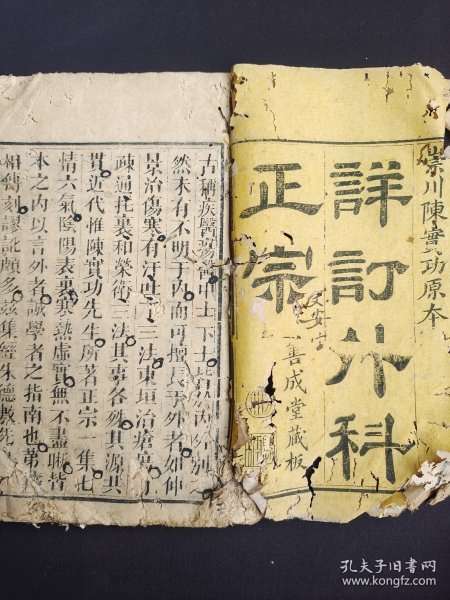 崇川陳實功原本
詳訂外科
正宗
善成堂藏板
古稱疾醫瘍醫中士下士
然未有不明于內而可擅長于外者如仲
景治傷寒有汗吐下三法東垣治瘡
疎通托裏和榮衛三法其事各殊其源共
貫近代惟陳實功先生所著正宗一集七
情六氣陰陽表裏寒熱虛實無不盡晰皆
本之內以言外者誠學者之指南也第
相傳刻謬訛頗多茲集經朱德敷先
孔夫子旧书网
www.kongfz.com